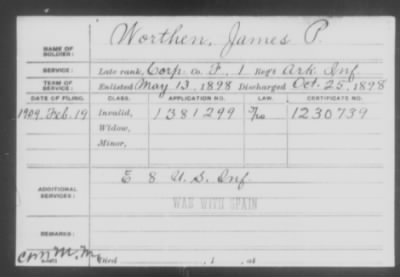 NAME OF SOLDIER: Worthen, James P.
SERVICE: Late rank, Corp. Co. F, 1 Reg't Ark. Inf.
TERM OF SERVICE: Enlisted May 13, 1898 Discharged Oct. 25, 1898
DATE OF FILING. CLASS. APPLICATION NO. LAW. CERTIFICATE NO.
1909, Feb. 19 Invalid, 1381299 1230739
Widow,
Minor,
ADDITIONAL SERVICES: E 8 U.S. Inf.
WAR WITH SPAIN
REMARKS:
Died , 1 , at